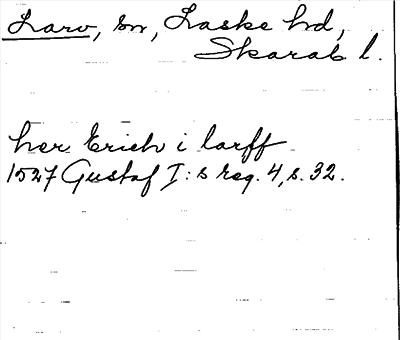 Larv, sn, Laske hd,
Skarab l.
her Erich i larff
1527 Gustaf I:s reg. 4, s. 32.